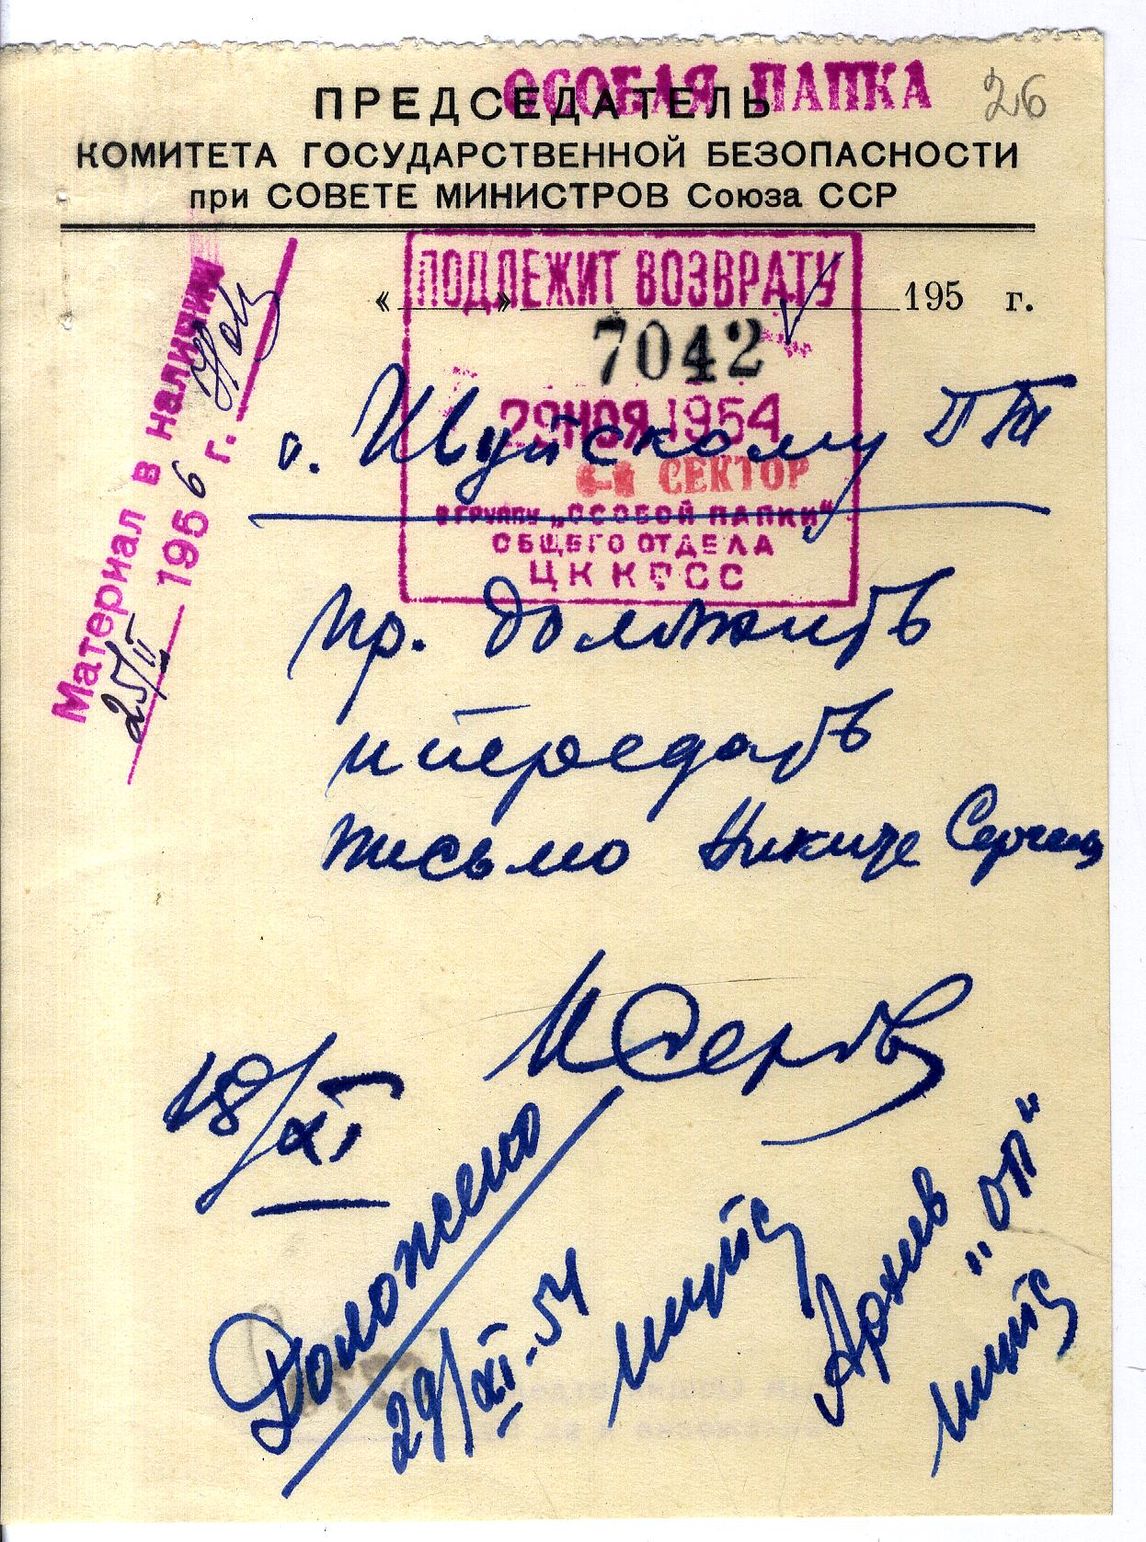 ОСОБАЯ ПАПКА
26
ПРЕДСЕДАТЕЛЬ
КОМИТЕТА ГОСУДАРСТВЕННОЙ БЕЗОПАСНОСТИ
при СОВЕТЕ МИНИСТРОВ Союза ССР
« » 195 г.
ПОДЛЕЖИТ ВОЗВРАТУ
7042
29 НОЯ 1954
СЕКТОР
В ГРУППУ „ОСОБОЙ ПАПКИ“
ОБЩЕГО ОТДЕЛА
ЦК КПСС
Материал в наличии
25/II 1956 г.
т. Шуйскому
пр. доложить
и передать
письмо Никите Сергеев
И Серов
18/XI
Доложено
29/XI-54
Архив
„ОП“